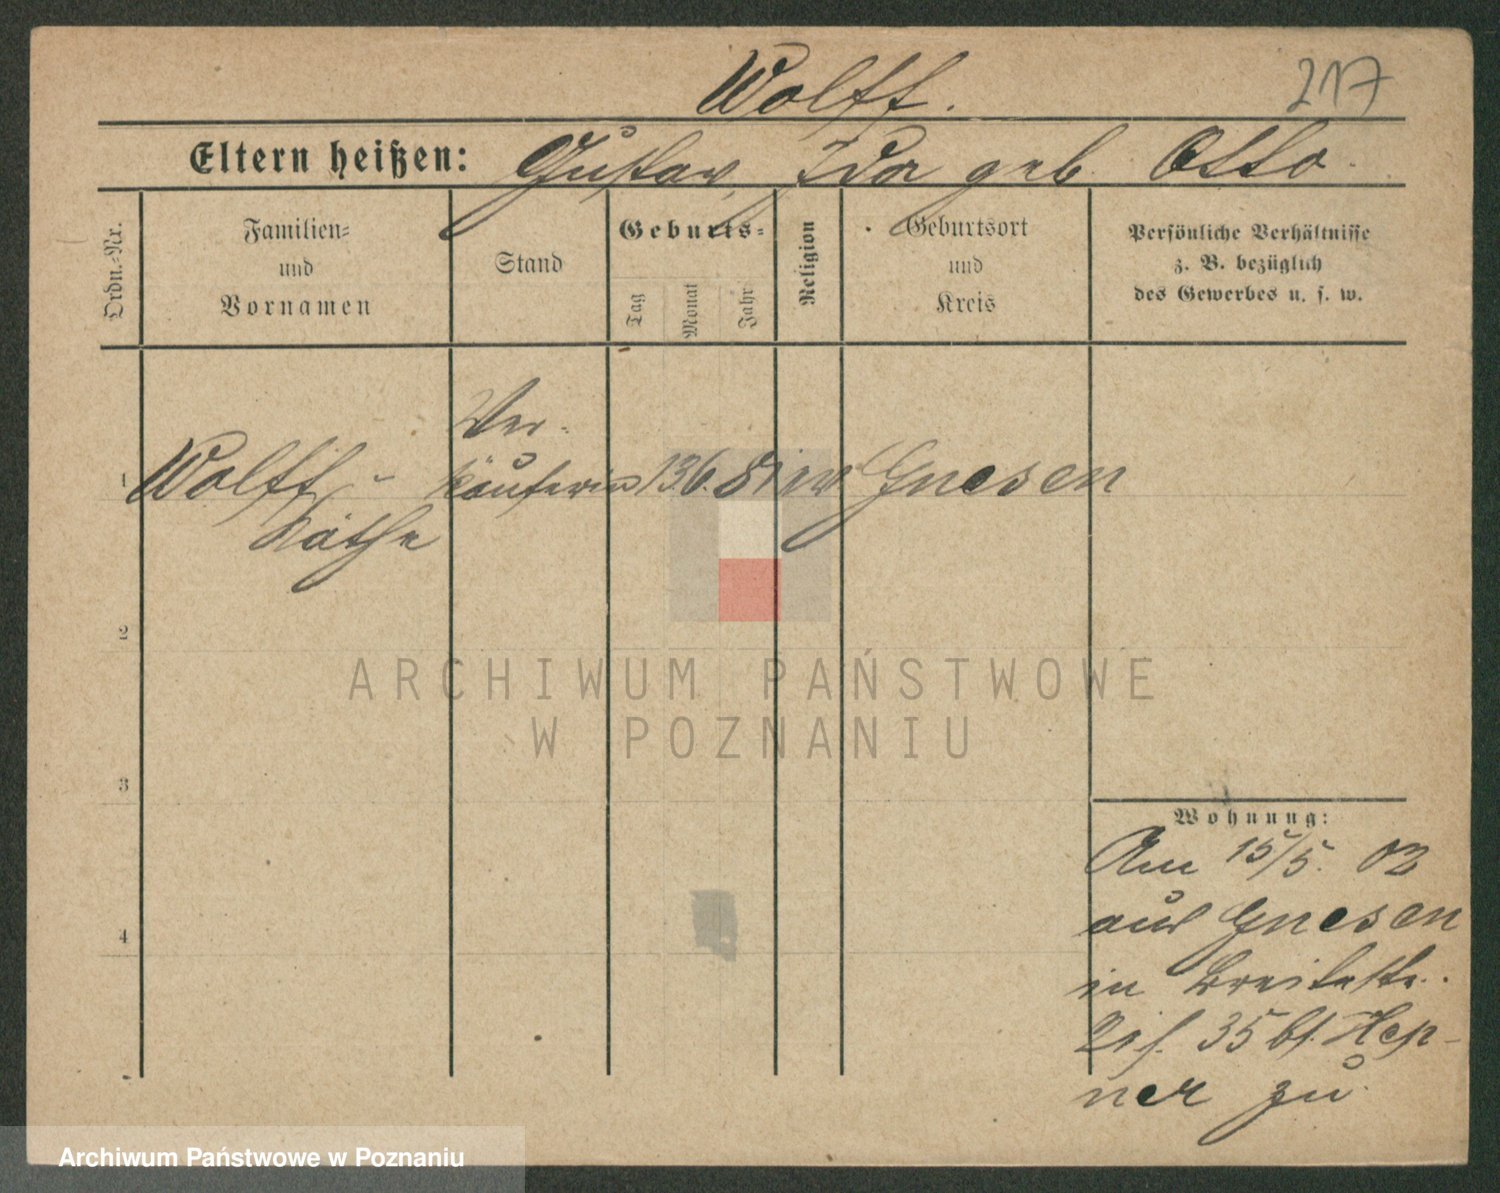 Wolff.
217
Eltern heißen: Gustav, Ida geb. Otto.
Ordn.-Nr.
Familien-
und
Vornamen
Stand
Geburts-
Tag
Monat
Jahr
Religion
Geburtsort
und
Kreis
Persönliche Verhältnisse
z. B. bezüglich
des Gewerbes u. s. w.
Ver-
1 Wolff käuferin 13. 6. 81 ev Gnesen
Käthe
2
3
4
Wohnung:
Am 15/5. 02
aus Gnesen
in Breitestr.
35 bf. Hep-
ner zu
ARCHIWUM PAŃSTWOWE
W POZNANIU
Archiwum Państwowe w Poznaniu